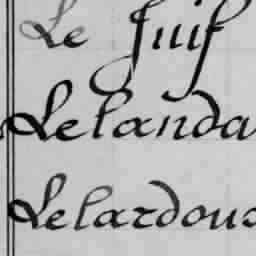 Le Juif
Lelanda
Lelardoux